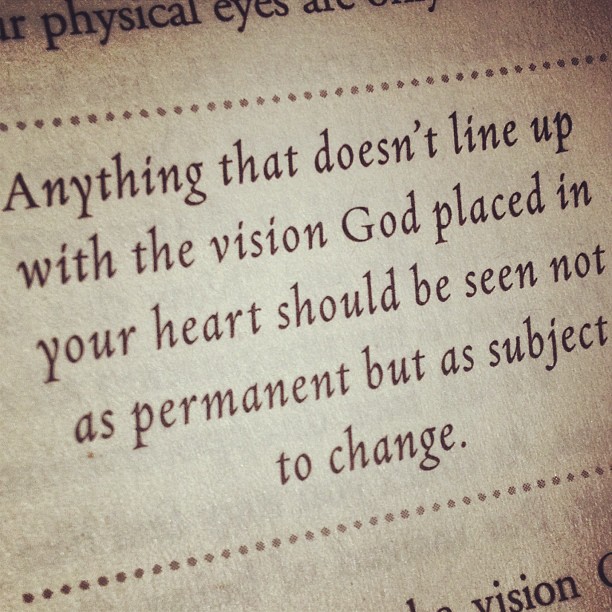 physical eyes are
Anything that doesn't line up
with the vision God placed in
your heart should be seen not
as permanent but as subject
to change.
vision